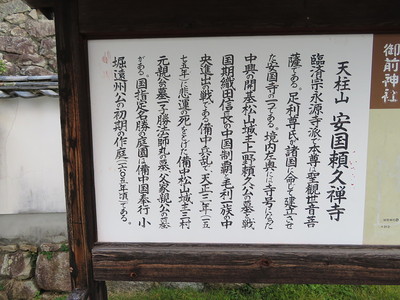 天柱山 安国頼久禅寺
臨済宗永源寺派・本尊は聖観世音菩
薩である。足利尊氏が諸国に命じて建立させ
た安国寺の一つである。境内左奥には寺号にちなんだ
中興の開基松山城主上野頼久公の墓と戦
国期織田信長の中国制覇と毛利一族の中
央進出の戦である備中兵乱で天正三年(一五
七五年)に悲運の死をとげた備中松山城主三村
元親公の墓・子勝法師丸の墓・父家親公の墓
がある。国指定名勝の庭園は備中国奉行 小
堀遠州公の初期の作庭(一六〇五年頃)である。
御前神社